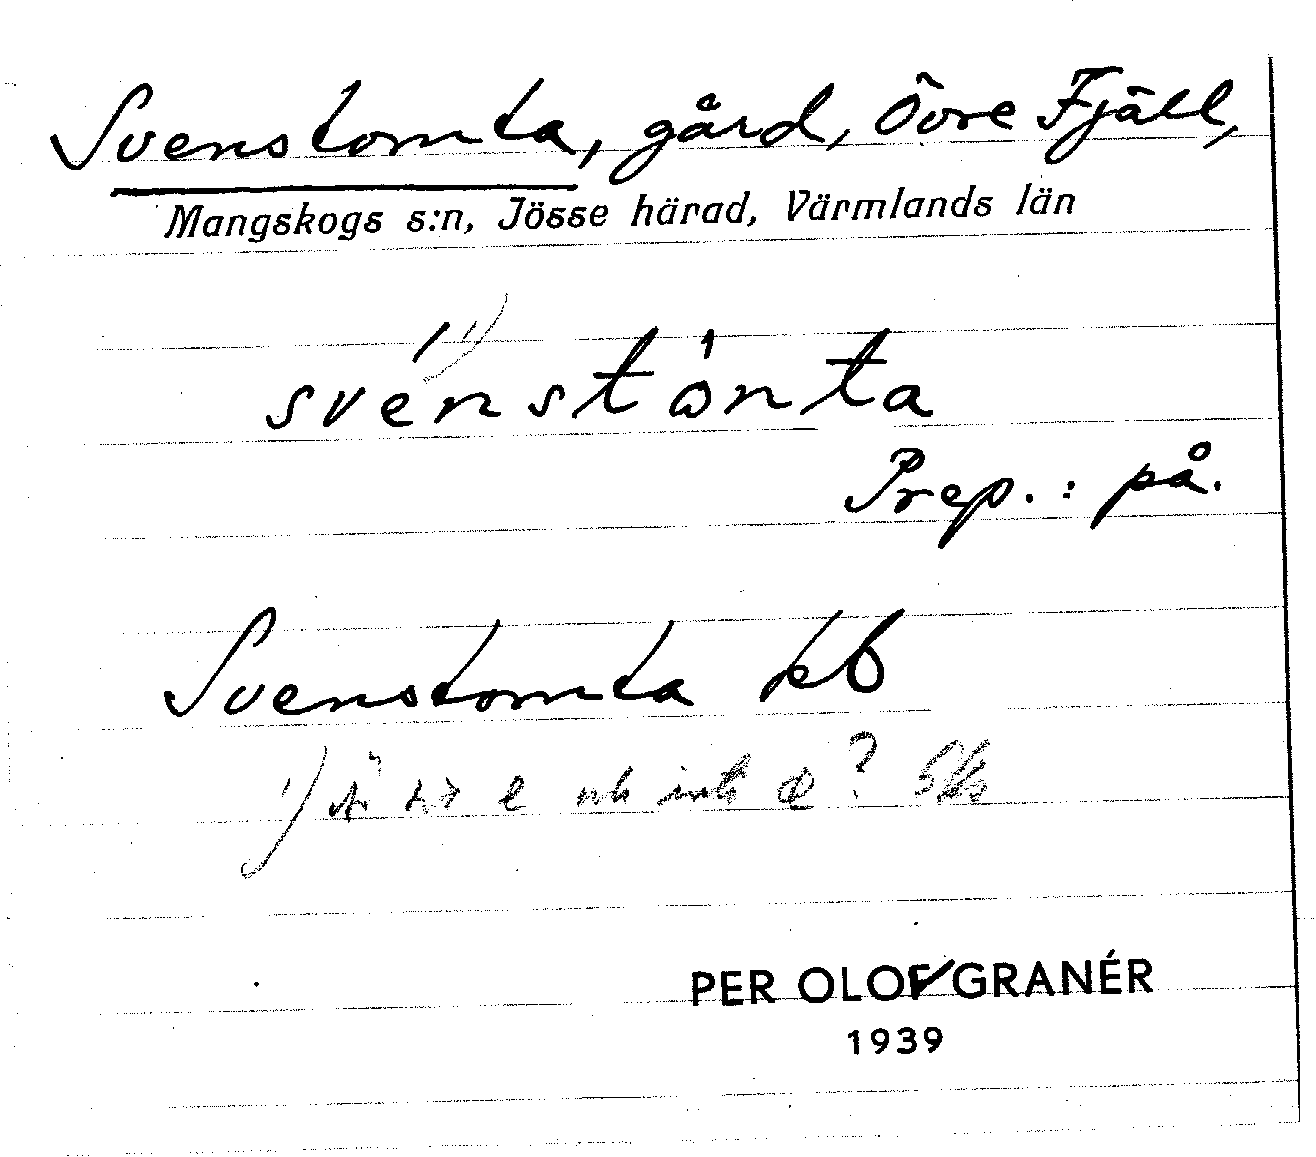 Svenstomta, gård, Övre Fjäll,
Mangskogs s:n, Jösse härad, Värmlands län
svénstònta
Prep.: på.
Svenstomta kb
1) Är det e och inte æ?
PER OLOF GRANÉR
1939